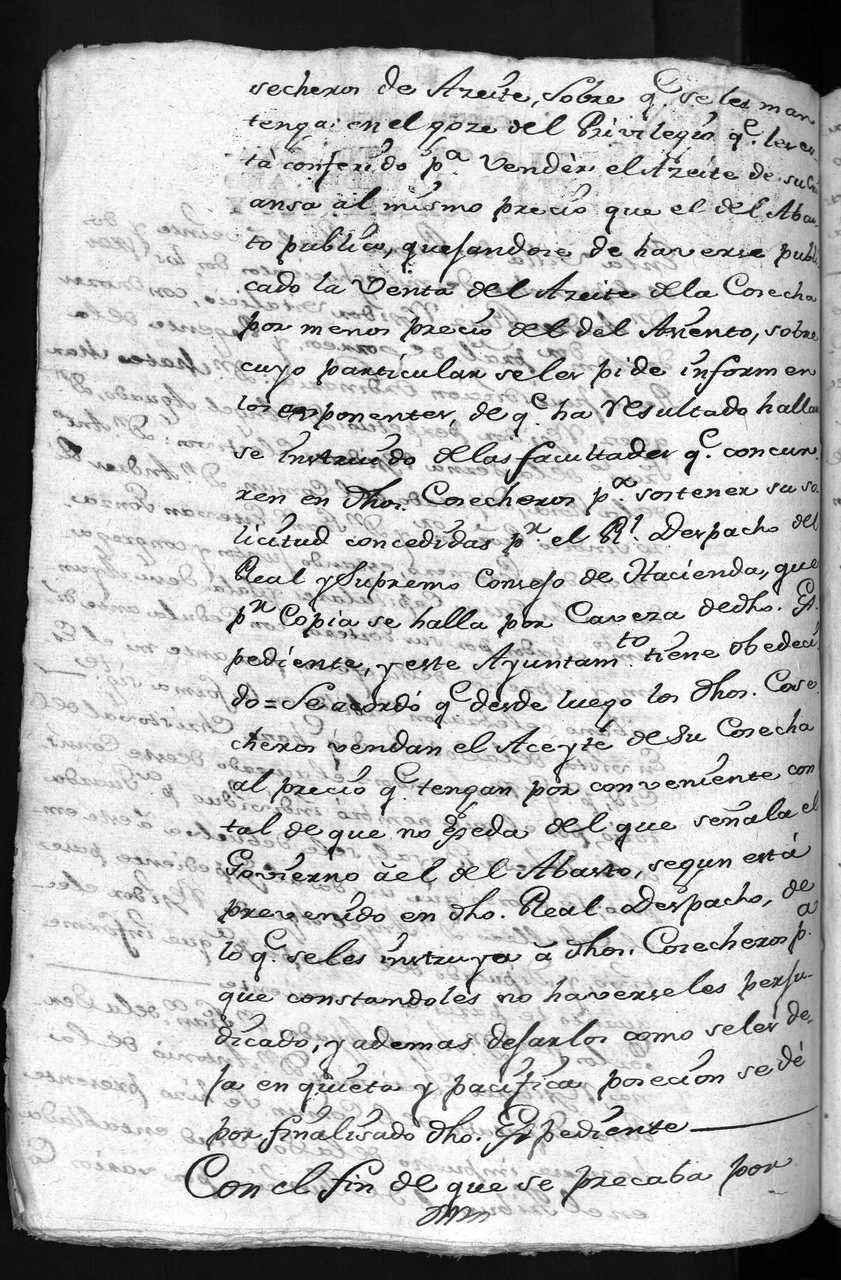 secheros de Azeite, sobre q.e se les man
tenga en el goze del Privilegio q.e les es-
tá conferido p.a vender el Azeite de su Cri
ansa al mismo precio que el del Abas-
to publico, quejandose de haverse publi
cado la Venta del Azeite dela Cosecha
por menos precio del del Aviento, sobre
cuyo particular seles pide informen
los exponentes, de q.e ha resultado hallar
se instruido delas facultades q.e concur-
ren en dhos. Cosecheros p.a sostener su so
licitud concedidas p.r el R.l Despacho del
Real y Supremo Consejo de Hacienda, que
p.r Copia se halla por Caveza de dho. Ex
pediente, y este Ayuntam.to tiene obedeci
do = Se acordó q.e desde luego los dhos. Cose
cheros vendan el Aceyte de su Cosecha
al precio q.e tengan por conveniente con
tal de que no exeda del que señala el
Govierno â el del Abasto, segun está
prevenido en dho. Real Despacho, de
lo q.e seles instruya â dhos. Cosecheros p.a
que constandoles no haverseles perju-
dicado, y ademas dejarlos como seles de-
ja en quieta y pacifica posecion se dé
por finalisado dho. Expediente
Con el fin de que se precaba por